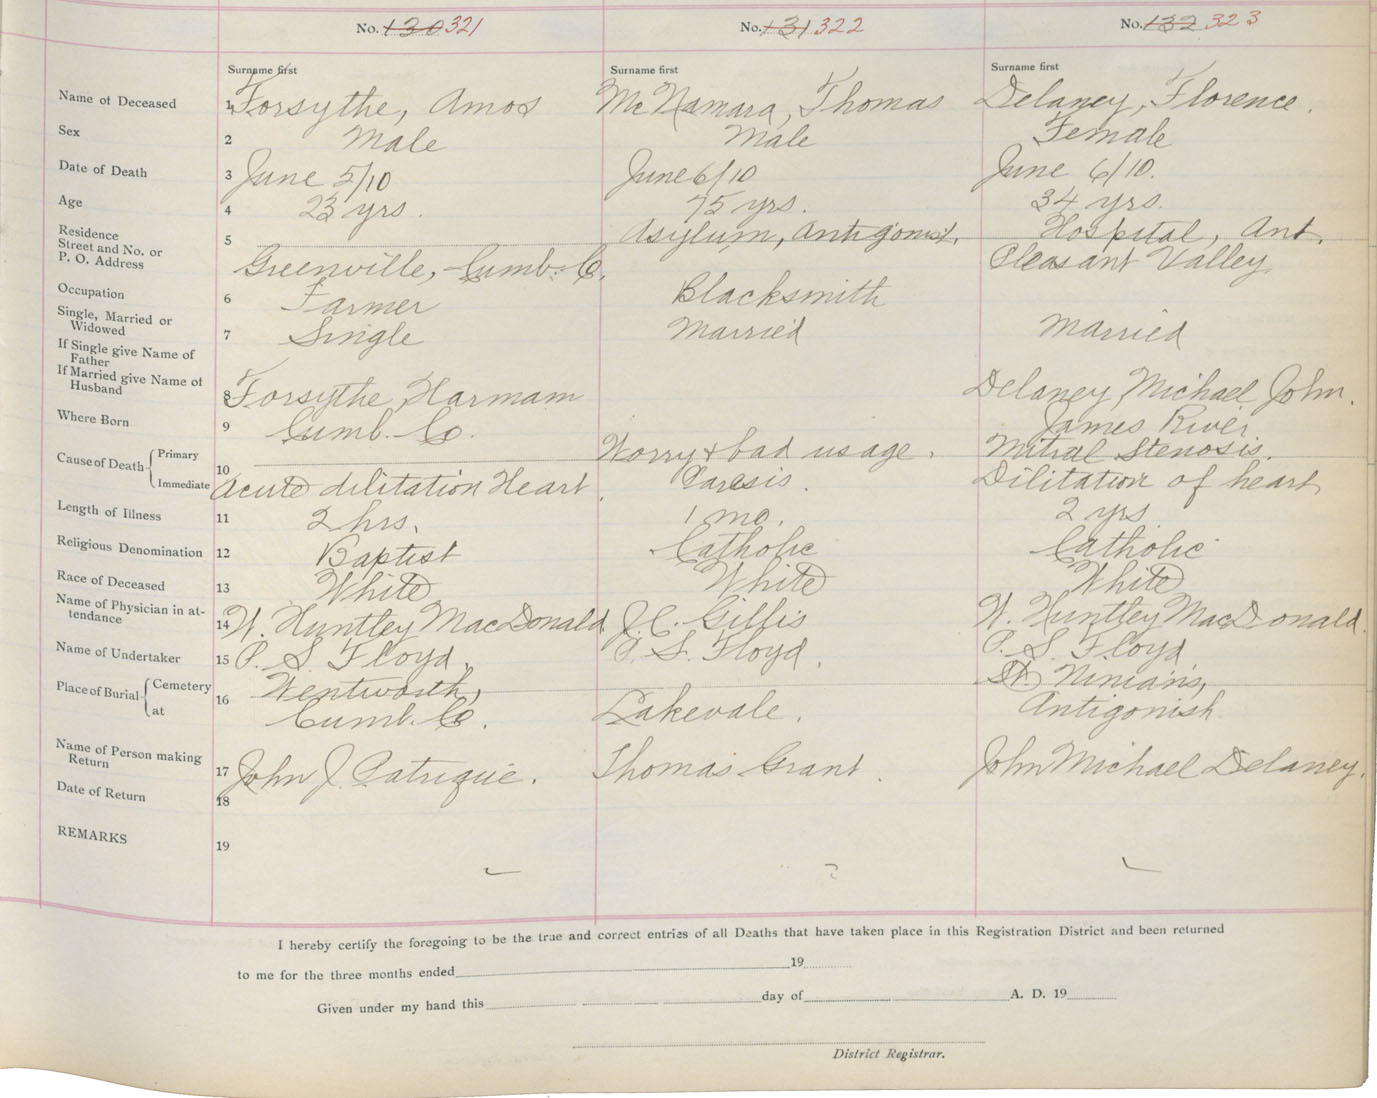 No. 130 321 No. 131 322 No. 132 323
Surname first Surname first Surname first
Name of Deceased 1 Forsythe, Amos McNamara, Thomas Delaney, Florence.
Sex 2 Male Male Female
Date of Death 3 June 5/10 June 6/10 June 6/10.
Age 4 23 yrs. 75 yrs. 34 yrs.
Residence
Street and No. or
P. O. Address
5 Asylum, Antigonish. Hospital, Ant.
Greenville, Cumb. Co. Pleasant Valley
Occupation 6 Farmer Blacksmith
Single, Married or
Widowed
7 Single Married Married
If Single give Name of
Father
If Married give Name of
Husband
8 Forsythe, Harmam Delaney, Michael John.
Where Born 9 Cumb. Co. James River
Cause of Death { Primary Worry & bad usage. Mitral Stenosis.
10
Immediate Acute dilitation Heart. Paresis. Dilitation of heart
Length of Illness 11 2 hrs. 1 mo. 2 yrs
Religious Denomination 12 Baptist Catholic Catholic
Race of Deceased 13 White White White
Name of Physician in at-
tendance
14 W. Huntley MacDonald. J. C. Gillis W. Huntley MacDonald.
Name of Undertaker 15 P. S. Floyd. P. S. Floyd. P. S. Floyd
Place of Burial { Cemetery Wentworth, St. Ninians,
16
at Cumb. Co. Lakevale. Antigonish
Name of Person making
Return
17 John J. Patriquie. Thomas Grant. John Michael Delaney.
Date of Return 18
REMARKS 19
?
I hereby certify the foregoing to be the true and correct entries of all Deaths that have taken place in this Registration District and been returned
to me for the three months ended 19
Given under my hand this day of A. D. 19
District Registrar.